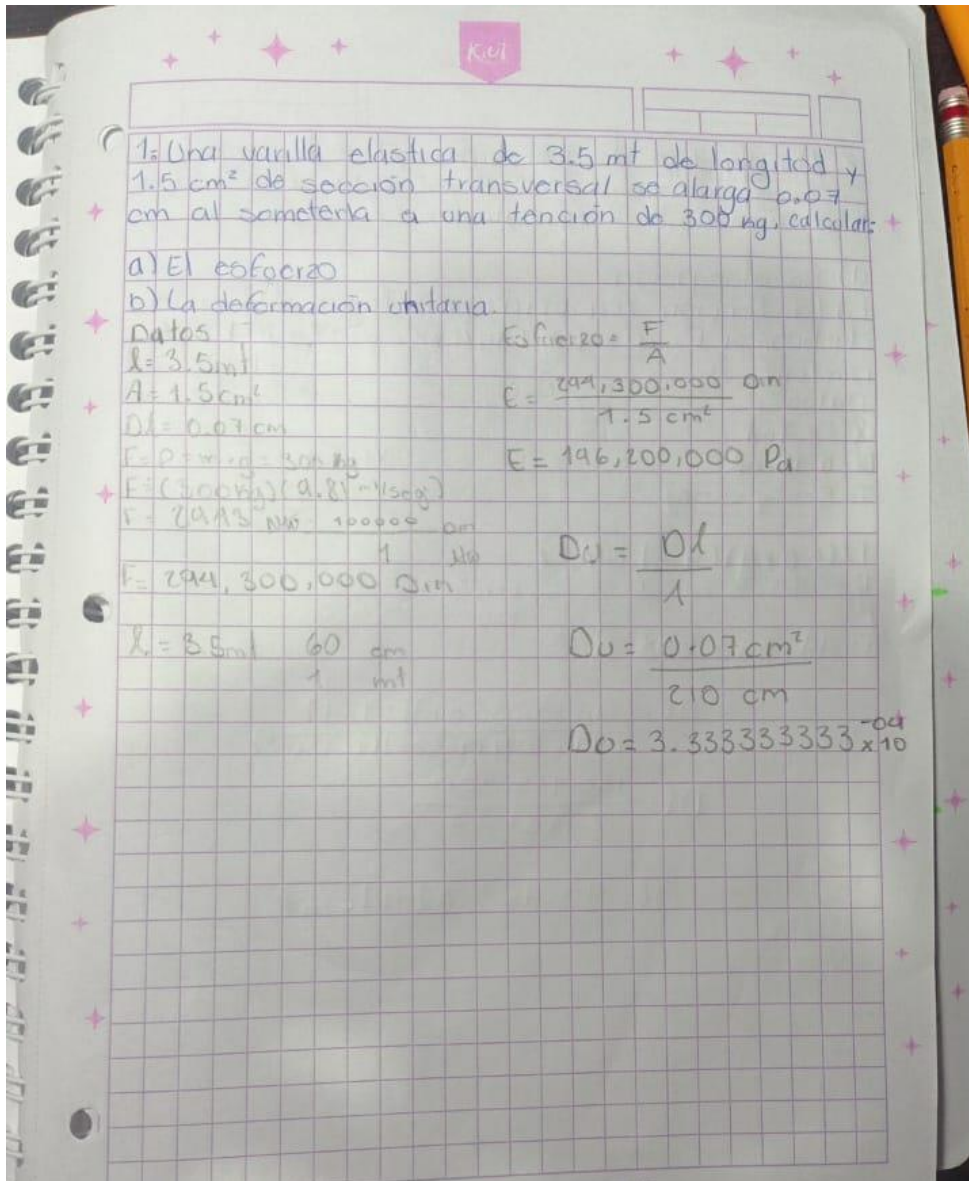 Kiut
1: Una varilla elastica de 3.5 mt de longitud y
1.5 cm² de sección transversal se alarga 0.07
cm al someterla a una tención de 300 kg, calcular:
a) El esfuerzo
b) La deformación unitaria.
Datos
l = 3.5mt
A = 1.5 cm²
Dl = 0.07 cm
F = P = m·g = 300 kg
F = (300kg)(9.81 m/seg²)
F = 2943 Nw 100000 Din
1 Nw
F = 294,300,000 Din
l = 3.5mt 60 cm
1 mt
Esfuerzo = F
A
E = 294,300,000 Din
1.5 cm²
E = 196,200,000 Pa
Du = Dl
1
Du = 0.07 cm²
210 cm
Du = 3.333333333 x10 -04